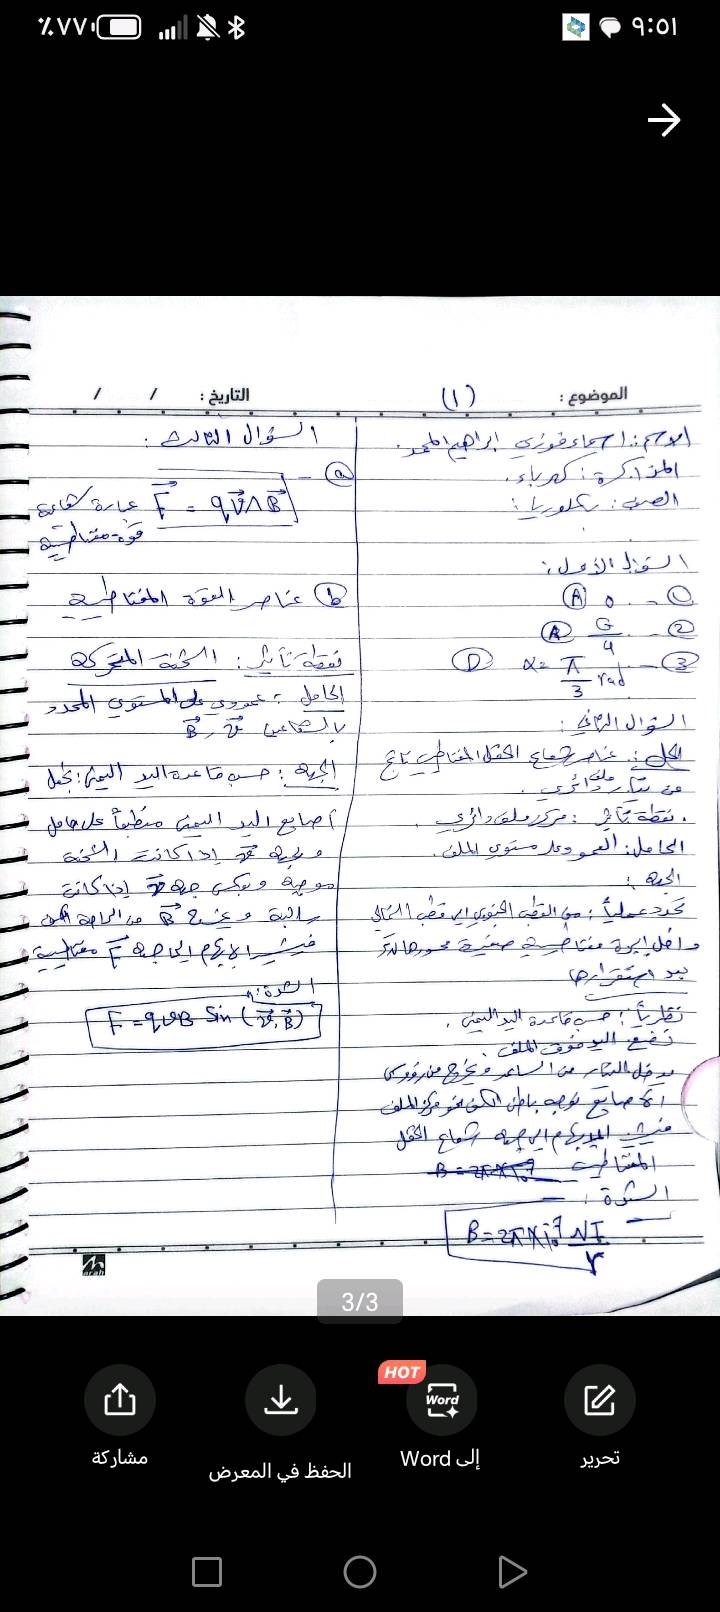 ٩:٥١
٪٧٧
الموضوع :
(١)
التاريخ : / /
الاسم: اسماء فوزي ابراهيم المحمد.
المذاكرة: كهرباء.
الصف: بكلوريا:
السؤال الأول:
① - 0 Ⓐ
② - G/4 Ⓐ
③ - α = π/3 rad Ⓓ
السؤال الثاني:
الحل: عناصر شعاع الحقل المغناطيسي ناتج
عن تيار ملف دائري.
نقطة تأثير: مركز ملف دائري.
الحامل: العمود على مستوي الملف.
الجهة:
تحدد عملياً: من القطب الجنوبي إلى قطب الشمالي
داخل إبرة مغناطيسية صغيرة محورها
بعد استقرارها
نظرياً: حسب قاعدة اليد اليمنى.
نضع اليد فوق الملف.
يدخل التيار من الساعد و يخرج من رؤوس
الأصابع نوجه باطن الكف نحو مركز الملف
فيشير الإبهام إلى جهة شعاع الحقل
المغناطيسي
الشدة:
B = 2π × 10⁻⁷ NI/r
السؤال الثالث:
ⓐ - F = qv∧B عبارة شعاعية
قوة مغناطيسية
ⓑ عناصر القوة المغناطيسية
نقطة تأثير: الشحنة المتحركة
الحامل: عمودي على المستوي المحدد
بالشعاعين v, B
الجهة: حسب قاعدة اليد اليمنى: نجعل
أصابع اليد اليمنى منطبقاً على حامل
و بجهة v إذا كانت الشحنة
موجبة و بعكس جهة v إذا كانت
سالبة و يخرج B من الراحة
فيشير الإبهام إلى جهة F مغناطيسية
الشدة:
F = qvB sin(v, B)
arab
3/3
HOT
Word
تحرير
إلى Word
الحفظ في المعرض
مشاركة